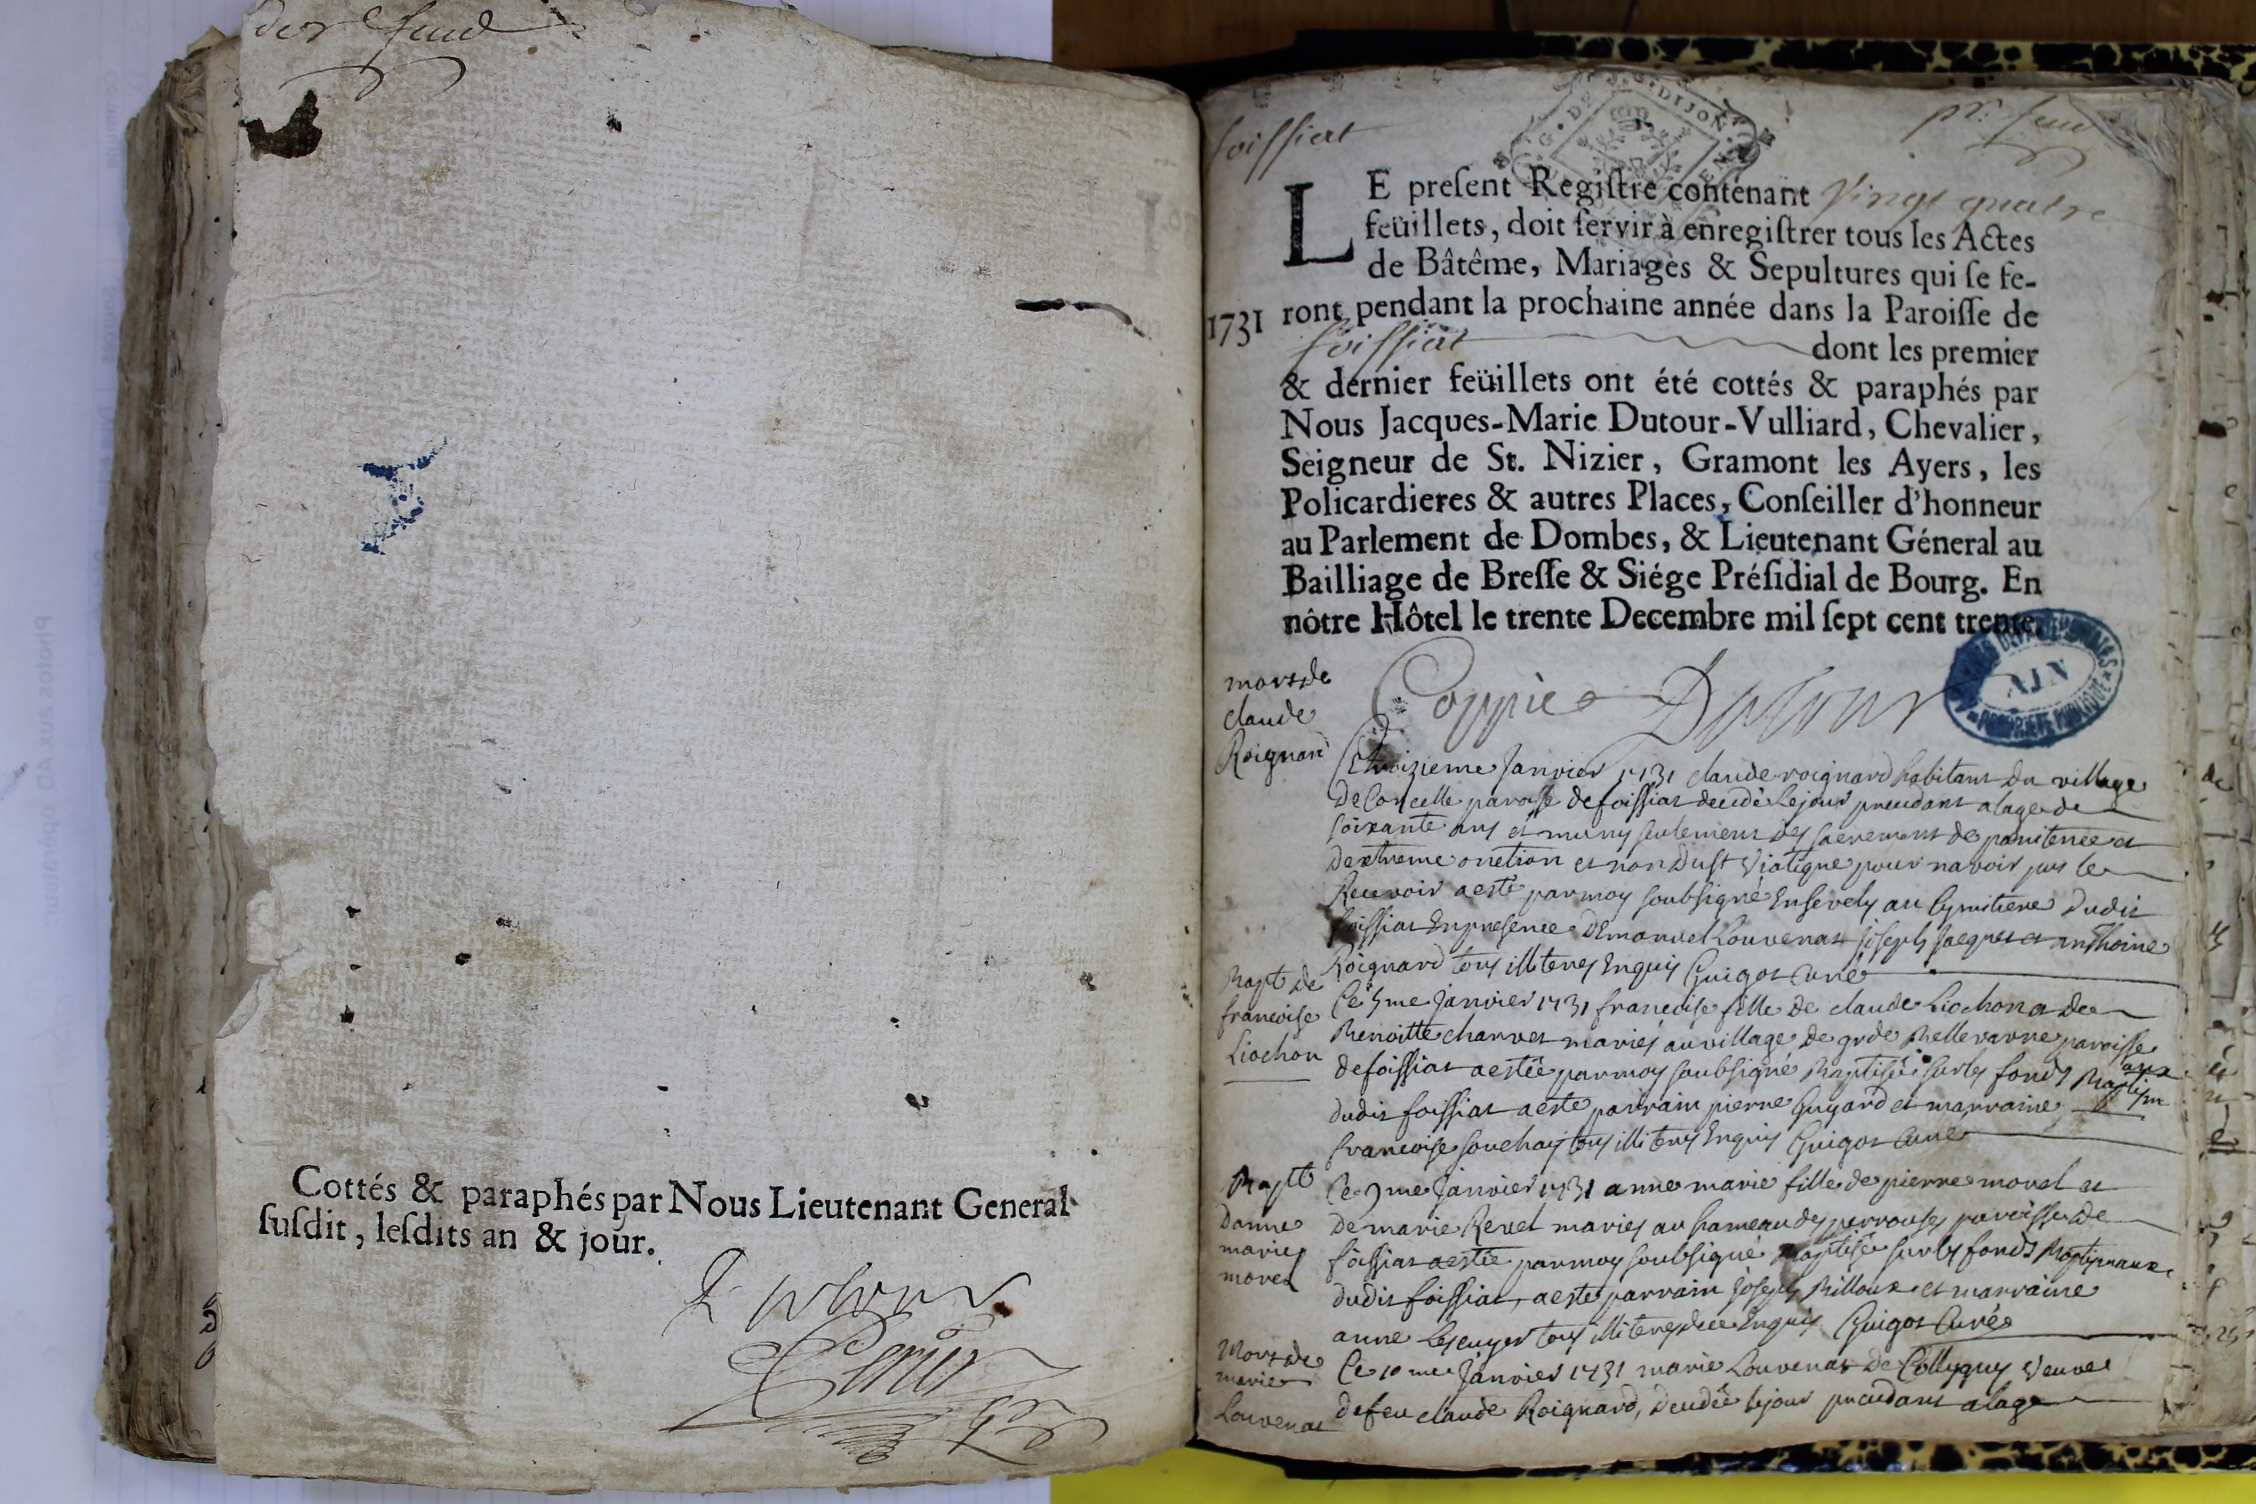 der feuil
Cottés & paraphés par Nous Lieutenant General
ſuſdit, leſdits an & jour.
Dutour
foissiat
pr. feuil
LE preſent Regiſtre contenant Vingt quatre
feüillets, doit ſervir à enregiſtrer tous les Actes
de Bâtême, Mariages & Sepultures qui ſe fe-
1731 ront pendant la prochaine année dans la Paroiſſe de
foissiat dont les premier
& dernier feüillets ont été cottés & paraphés par
Nous Jacques-Marie Dutour-Vulliard, Chevalier,
Seigneur de St. Nizier, Gramont les Ayers, les
Policardieres & autres Places, Conſeiller d'honneur
au Parlement de Dombes, & Lieutenant Géneral au
Bailliage de Breſſe & Siége Préſidial de Bourg. En
nôtre Hôtel le trente Decembre mil ſept cent trente.
Coppie Dutour
mort de
claude
Roignard
Ce troizieme Janvier 1731 claude roignard habitant du village
De Corcelle paroisse de foissiat decedé le jour precedant a lage de
soixante ans et muny seulement des sacrements de penitence et
dextreme onction et non du st viatique pour navoir pu le
Recevoir a esté par moy soubsigné Ensevely au Cymitiere dudit
foissiat En presence Demanuel Louvenat Joseph Jacquet et anthoine
Roignard tous illiteres Enquis Guigot Curé
Bapt de
francoise
Liochon
Ce 5me Janvier 1731 francoise fille de claude Liochon et de
Benoitte charvet mariés au village de grde Bellevavre paroisse
de foissiat a estée par moy soubsigné Baptisée sur les fonds Baptismaux
dudit foissiat a esté parrain pierre Guyard et marraine
francoise souchay tous illiteres Enquis Guigot Curé
Bapte
Danne
marie
morel
Ce 9me Janvier 1731 anne marie fille de pierre morel et
De marie Revel mariés au hameau des perrouses paroisse de
foissiat a estée par moy soubsigné Baptisée sur les fonds Baptismaux
dudit foissiat, a esté parrain Joseph Billoux et marraine
anne Lescuyer tous illiteres Enquis Guigot Curé
Mort de
marie
Louvenat
Ce 10me Janvier 1731 marie Louvenat de Collygny Veuve
de feu claude Roignard, Decedée le jour precedant a lage